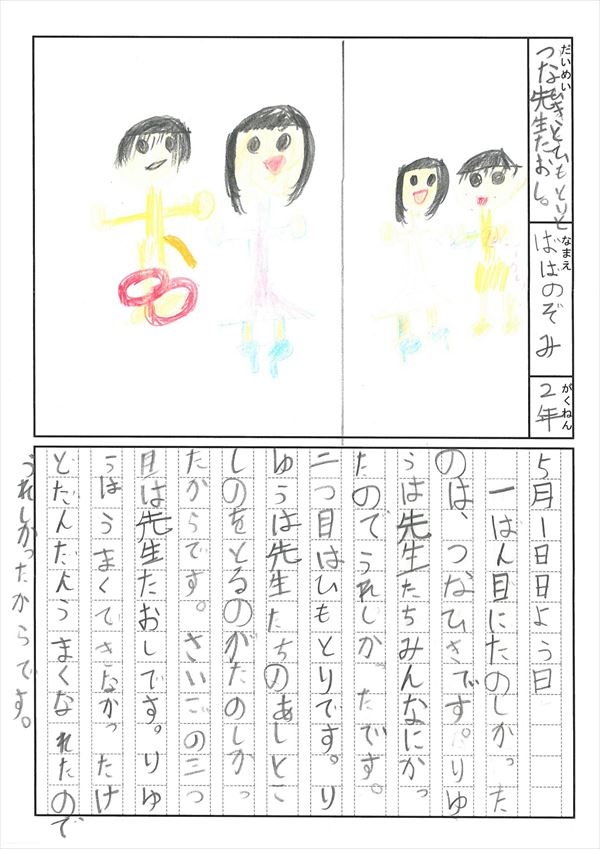 だいめい
つなひきとひもとりと
先生たおし。
なまえ
ばばのぞみ
がくねん
2年
5月1日日よう日
一ばん目にたのしかった
のは、つなひきです。りゆ
うは先生たちみんなにかっ
たのでうれしかったです。
二つ目はひもとりです。り
ゆうは先生たちのあしとこ
しのをとるのがたのしかっ
たからです。さいごの三つ
目は先生たおしです。りゆ
うはうまくできなかったけ
どだんだんうまくなれたので
うれしかったからです。